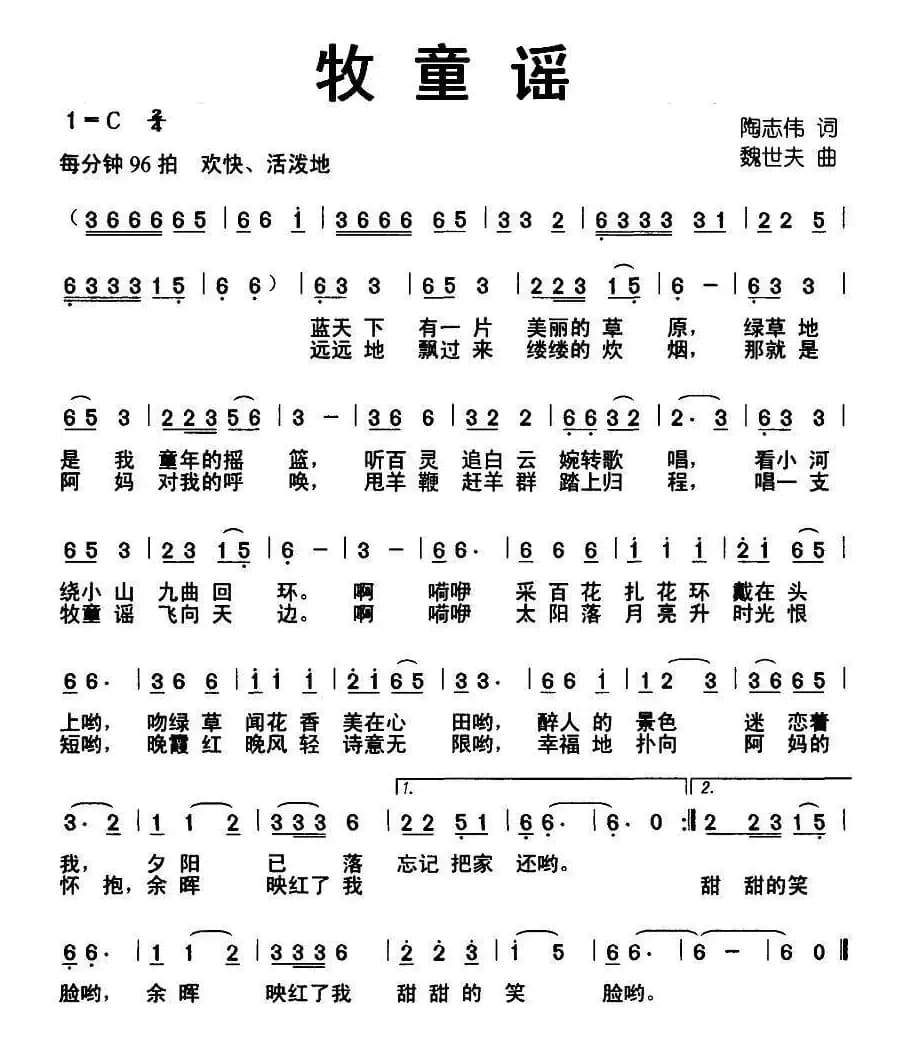 牧童谣
1=C 2/4
陶志伟 词
每分钟96拍 欢快、活泼地
魏世夫 曲
(366665 | 66 i | 3666 65 | 33 2 | 6333 31 | 22 5 |
633315 | 6 6) | 63 3 | 65 3 | 223 15 | 6 - | 63 3 |
蓝天 下 有一 片 美丽的 草 原, 绿草 地
远远 地 飘过 来 缕缕的 炊 烟, 那就 是
65 3 | 22356 | 3 - | 36 6 | 32 2 | 6632 | 2· 3 | 63 3 |
是 我 童年的摇 篮, 听百 灵 追白 云 婉转歌 唱, 看小 河
阿 妈 对我的呼 唤, 甩羊 鞭 赶羊 群 踏上归 程, 唱一 支
65 3 | 23 15 | 6 - | 3 - | 66· | 6 6 6 | i i i | 2i 65 |
绕小 山 九曲 回 环。 啊 嗬咿 采 百 花 扎 花 环 戴在 头
牧童 谣 飞向 天 边。 啊 嗬咿 太 阳 落 月 亮 升 时光 恨
66· | 36 6 | ii i | 2i65 | 33· | 66 i | 12 3 | 3665 |
上哟, 吻绿 草 闻花 香 美在心 田哟, 醉人 的 景色 迷 恋着
短哟, 晚霞 红 晚风 轻 诗意无 限哟, 幸福 地 扑向 阿 妈的
1. 2.
3· 2 | 1 1 2 | 333 6 | 22 51 | 66· | 6· 0 :‖ 2 23 15 |
我, 夕 阳 已 落 忘记 把家 还哟。
怀 抱,余 晖 映红了 我 甜 甜的 笑
66· | 1 1 2 | 333 6 | 2 2 3 | i 5 | 66· | 6 - | 6 0 ‖
脸哟, 余 晖 映红了我 甜 甜 的 笑 脸哟。